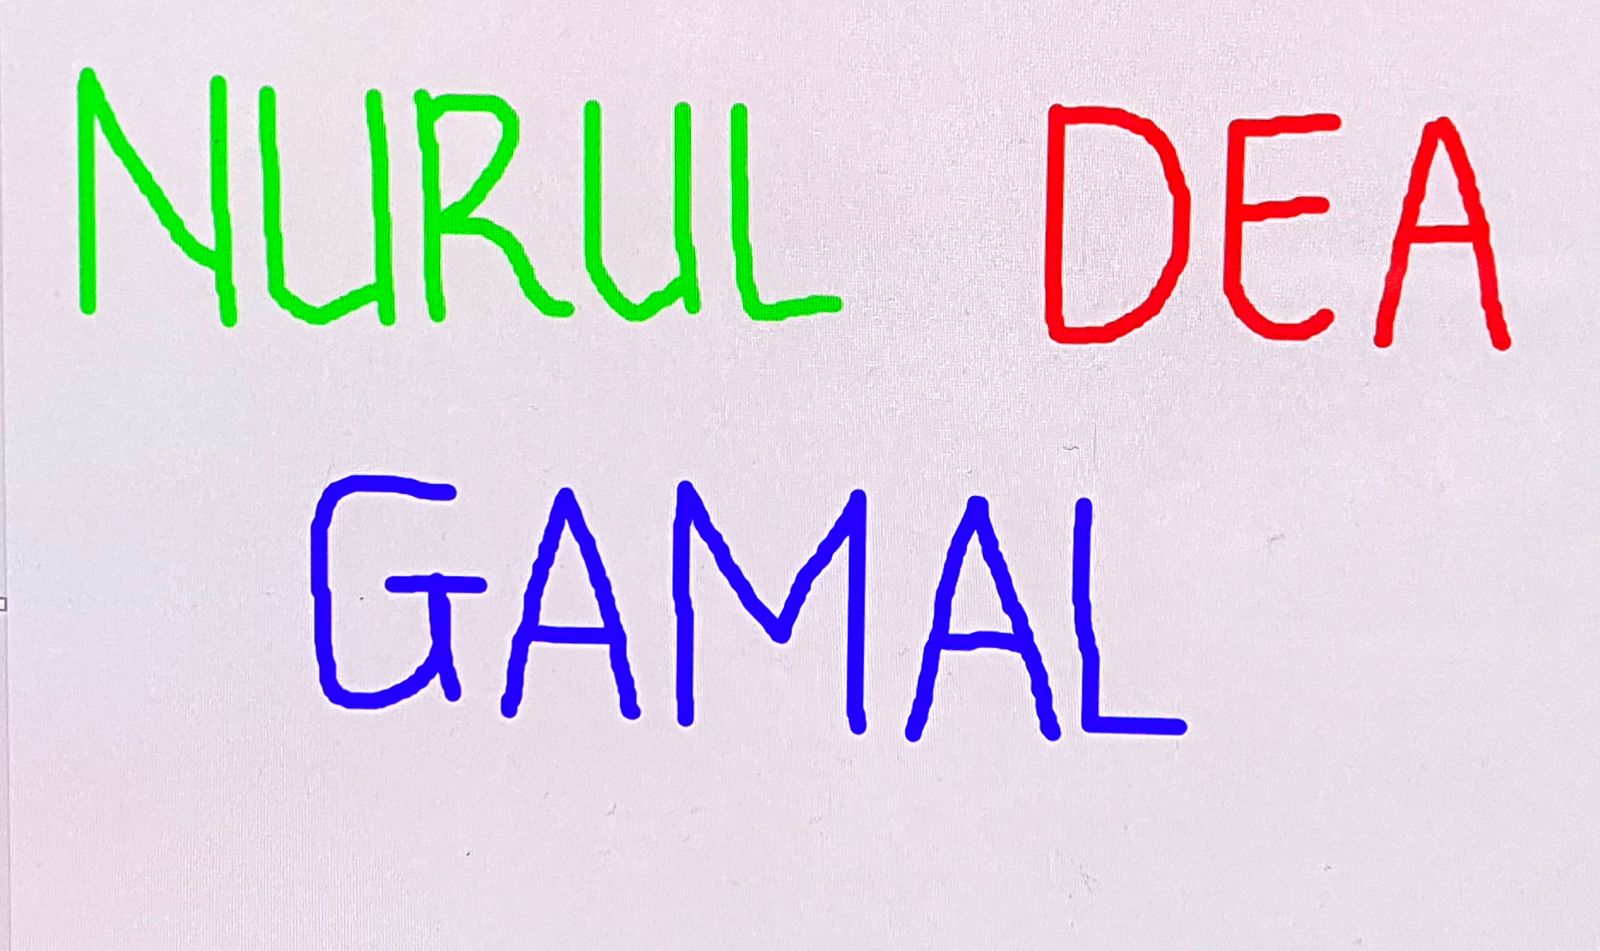 NURUL DEA
GAMAL